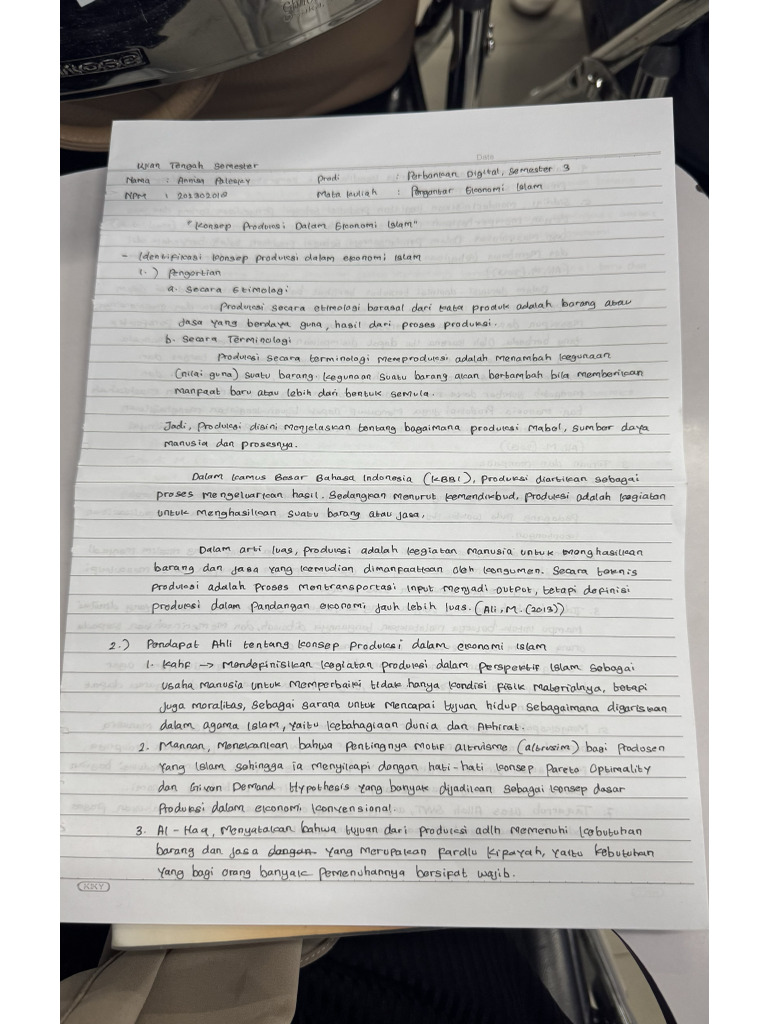 Date
Ujian Tengah Semester
Nama : Annisa Paleqay Prodi : Perbankan Digital, Semester 3
NPM : 202302018 Mata kuliah : Pengantar Ekonomi Islam
"Konsep Produksi Dalam Ekonomi Islam"
- Identifikasi konsep produksi dalam ekonomi Islam
1.) Pengertian
a. Secara Etimologi
Produksi secara etimologi berasal dari kata produk adalah barang atau
Jasa yang berdaya guna, hasil dari proses produksi.
b. Secara Terminologi
Produksi secara terminologi memproduksi adalah menambah kegunaan
(nilai guna) suatu barang. kegunaan suatu barang akan bertambah bila memberikan
manfaat baru atau lebih dari bentuk semula.
Jadi, Produksi disini menjelaskan tentang bagaimana produksi mabel, sumber daya
manusia dan prosesnya.
Dalam kamus Besar Bahasa Indonesia (KBBI), Produksi diartikan sebagai
proses mengeluarkan hasil. Sedangkan menurut kemendikbud, Produksi adalah kegiatan
untuk menghasilkan suatu barang atau jasa.
Dalam arti luas, produksi adalah kegiatan manusia untuk menghasilkan
barang dan jasa yang kemudian dimanfaatkan oleh konsumen. Secara teknis
produksi adalah Proses mentransportasi input menjadi output, tetapi definisi
produksi dalam Pandangan ekonomi jauh lebih luas. (Ali, M. (2013))
2.) Pendapat Ahli tentang konsep Produksi dalam ekonomi Islam
1. Kahf → Mendefinisikan kegiatan produksi dalam perspektif Islam sebagai
usaha manusia untuk memperbaiki tidak hanya kondisi fisik materialnya, tetapi
juga moralitas, sebagai sarana untuk mencapai tujuan hidup sebagaimana digariskan
dalam agama Islam, yaitu kebahagiaan dunia dan Akhirat.
2. Mannan, Menekankan bahwa Pentingnya motif altruisme (altruism) bagi Prodosen
yang Islam sehingga ia menyikapi dengan hati-hati konsep Pareto Optimality
dan Given Demand Hypothesis yang banyak dijadikan sebagai konsep dasar
Produksi dalam ekonomi konvensional.
3. Al-Haq, Menyatakan bahwa tujuan dari produksi adlh memenuhi kebutuhan
barang dan jasa dengan yang merupakan Fardlu kifayah, yaitu kebutuhan
yang bagi orang banyak pemenuhannya bersifat wajib.
KKY